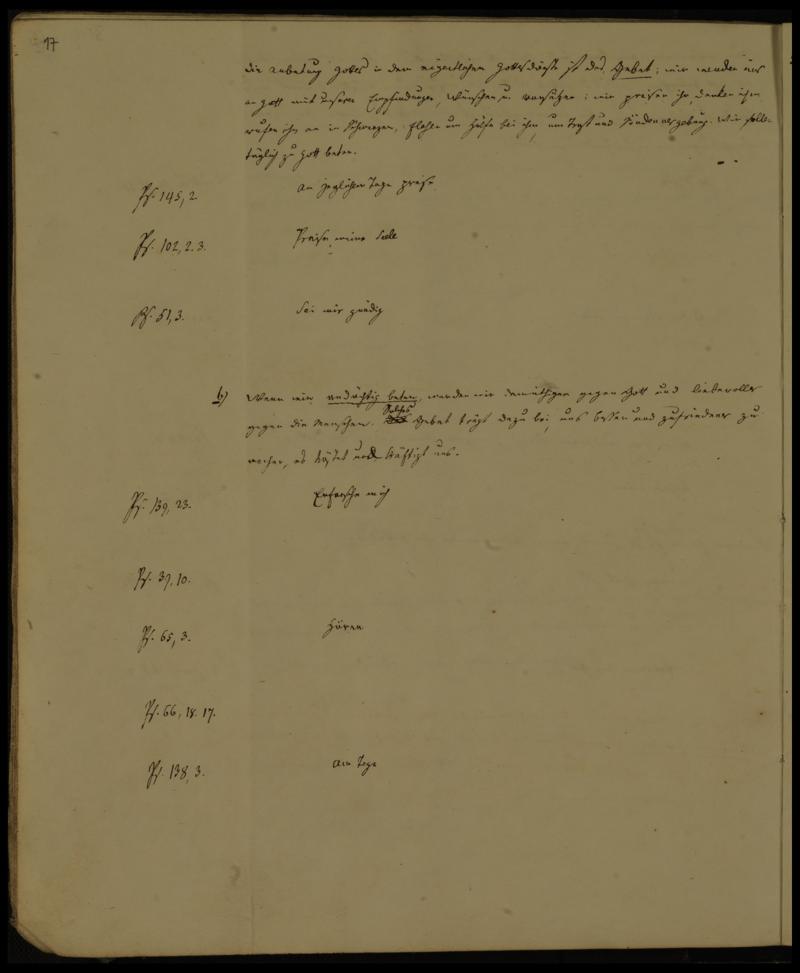 17
die Anbetung Gottes in dem eigentlichen Gottesdienste ist das Gebet; wir wenden uns
an Gott mit unseren Empfindungen, Wünschen u Vorsätzen; wir preisen ihn, danken ihm
rufen ihn an in Schmerzen, flehen um Hülfe bei ihm, um Trost und Sündenvergebung. Wir sollen
täglich zu Gott beten.
Ps. 145, 2. An jeglichem Tage preise
Ps. 102, 2. 3. Preise meine Seele
Ps. 51, 3. Sei mir gnädig
b) Wenn wir andächtig beten, werden wir demüthiger gegen Gott und liebevoller
gegen die Menschen. Solches Gebet trägt dazu bei, uns besser und zufriedener zu
machen, es tröstet und kräftigt uns.
Ps. 139, 23. Erforsche mich
Ps. 39, 10.
Ps. 65, 3. Hörer
Ps. 66, 18. 17.
Ps. 138, 3. Am Tage